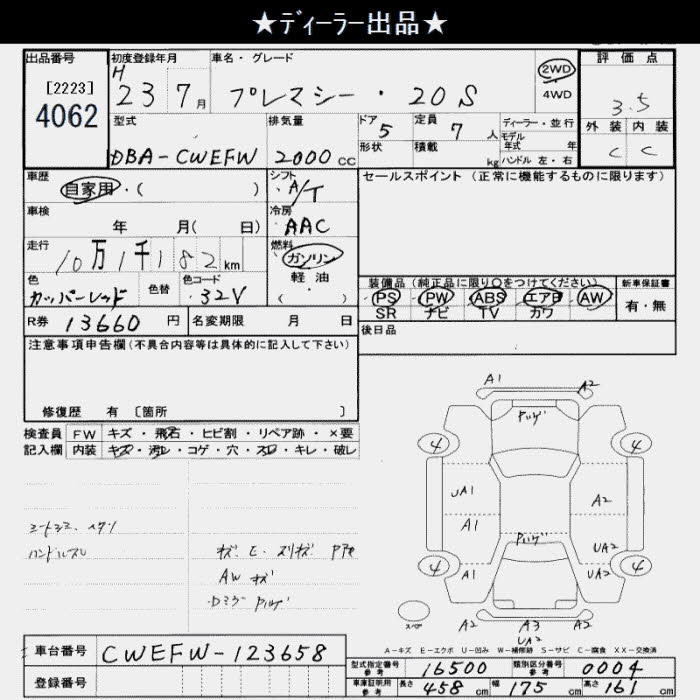 ★ディーラー出品★
出品番号
[2223]
4062
初度登録年月
H
23 7月
車名・グレード
プレマシー・20S
2WD
4WD
評価点
3.5
外装 内装
C C
型式
DBA-CWEFW
排気量
2000cc
ドア
5
形状
定員
7人
積載
kg
ディーラー・並行
モデル
年式 年
ハンドル左・右
車歴
自家用・( )
シフト
A/T
セールスポイント(正常に機能するものに限ります)
車検
年 月( 日)
冷房
AAC
走行
10万1千182km
燃料
ガソリン
軽油
・
( )
色
カッパーレッド
色替
色コード
32V
装備品(純正品に限り○をつけてください)
PS PW ABS エアB AW
SR ナビ TV カワ
新車保証書
有・無
R券 13660円
名変期限 月 日
後日品
注意事項申告欄(不具合内容等は具体的に記入して下さい)
修復歴 有〔箇所 〕
検査員 FW キズ・飛石・ヒビ割・リペア跡・×要
記入欄 内装 キズ・汚レ・コゲ・穴・スレ・キレ・破レ
A1 A2
4 4
UA1 A2
A1
UA2
4 A1 UA2 4
A2 A3 A2
UA2
スペア
ハンドルスレ
AWキズ
A-キズ E-エクボ U-凹み W-補修跡 S-サビ C-腐食 XX-交換済
車台番号 CWEFW-123658
登録番号
型式指定番号
参考
16500
類別区分番号
参考
0004
車庫証明用
参考
長さ 458cm 幅 175cm 高さ 161cm